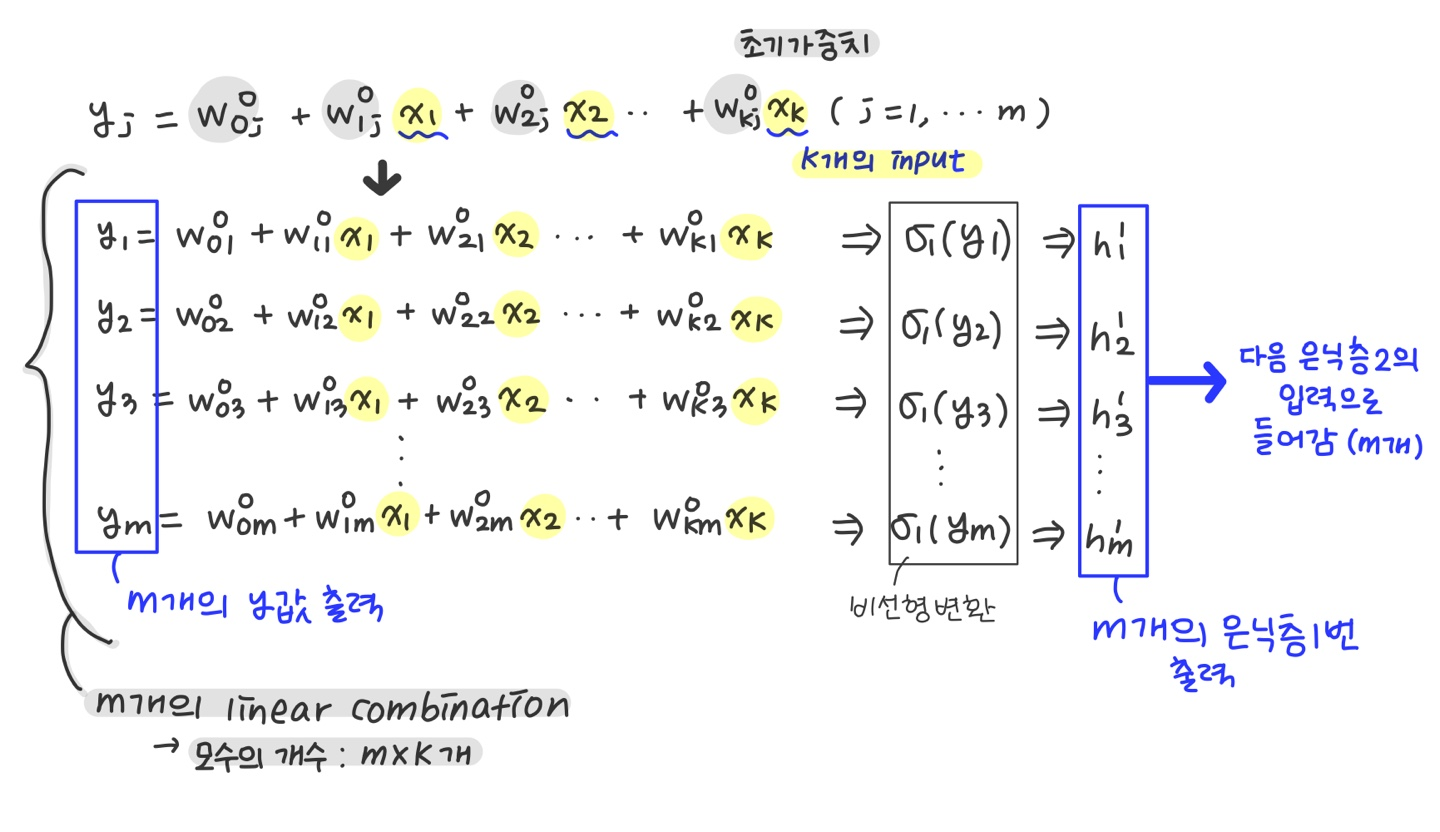 초기가중치
y_j = w^0_{0j} + w^0_{1j} x_1 + w^0_{2j} x_2 ·· + w^0_{kj} x_k ( j=1, ··· m )
k개의 input
y_1 = w^0_{01} + w^0_{11} x_1 + w^0_{21} x_2 ··· + w^0_{k1} x_k ⇒ σ_1(y_1) ⇒ h^1_1
y_2 = w^0_{02} + w^0_{12} x_1 + w^0_{22} x_2 ··· + w^0_{k2} x_k ⇒ σ_1(y_2) ⇒ h^1_2
y_3 = w^0_{03} + w^0_{13} x_1 + w^0_{23} x_2 ·· + w^0_{k3} x_k ⇒ σ_1(y_3) ⇒ h^1_3
⋮ ⋮ ⋮
y_m = w^0_{0m} + w^0_{1m} x_1 + w^0_{2m} x_2 ·· + w^0_{km} x_k ⇒ σ_1(y_m) ⇒ h^1_m
다음 은닉층2의
입력으로
들어감 (m개)
m개의 y값 출력
비선형변환
m개의 은닉층1번
출력
m개의 linear combination
→ 모수의 개수 : m×k개